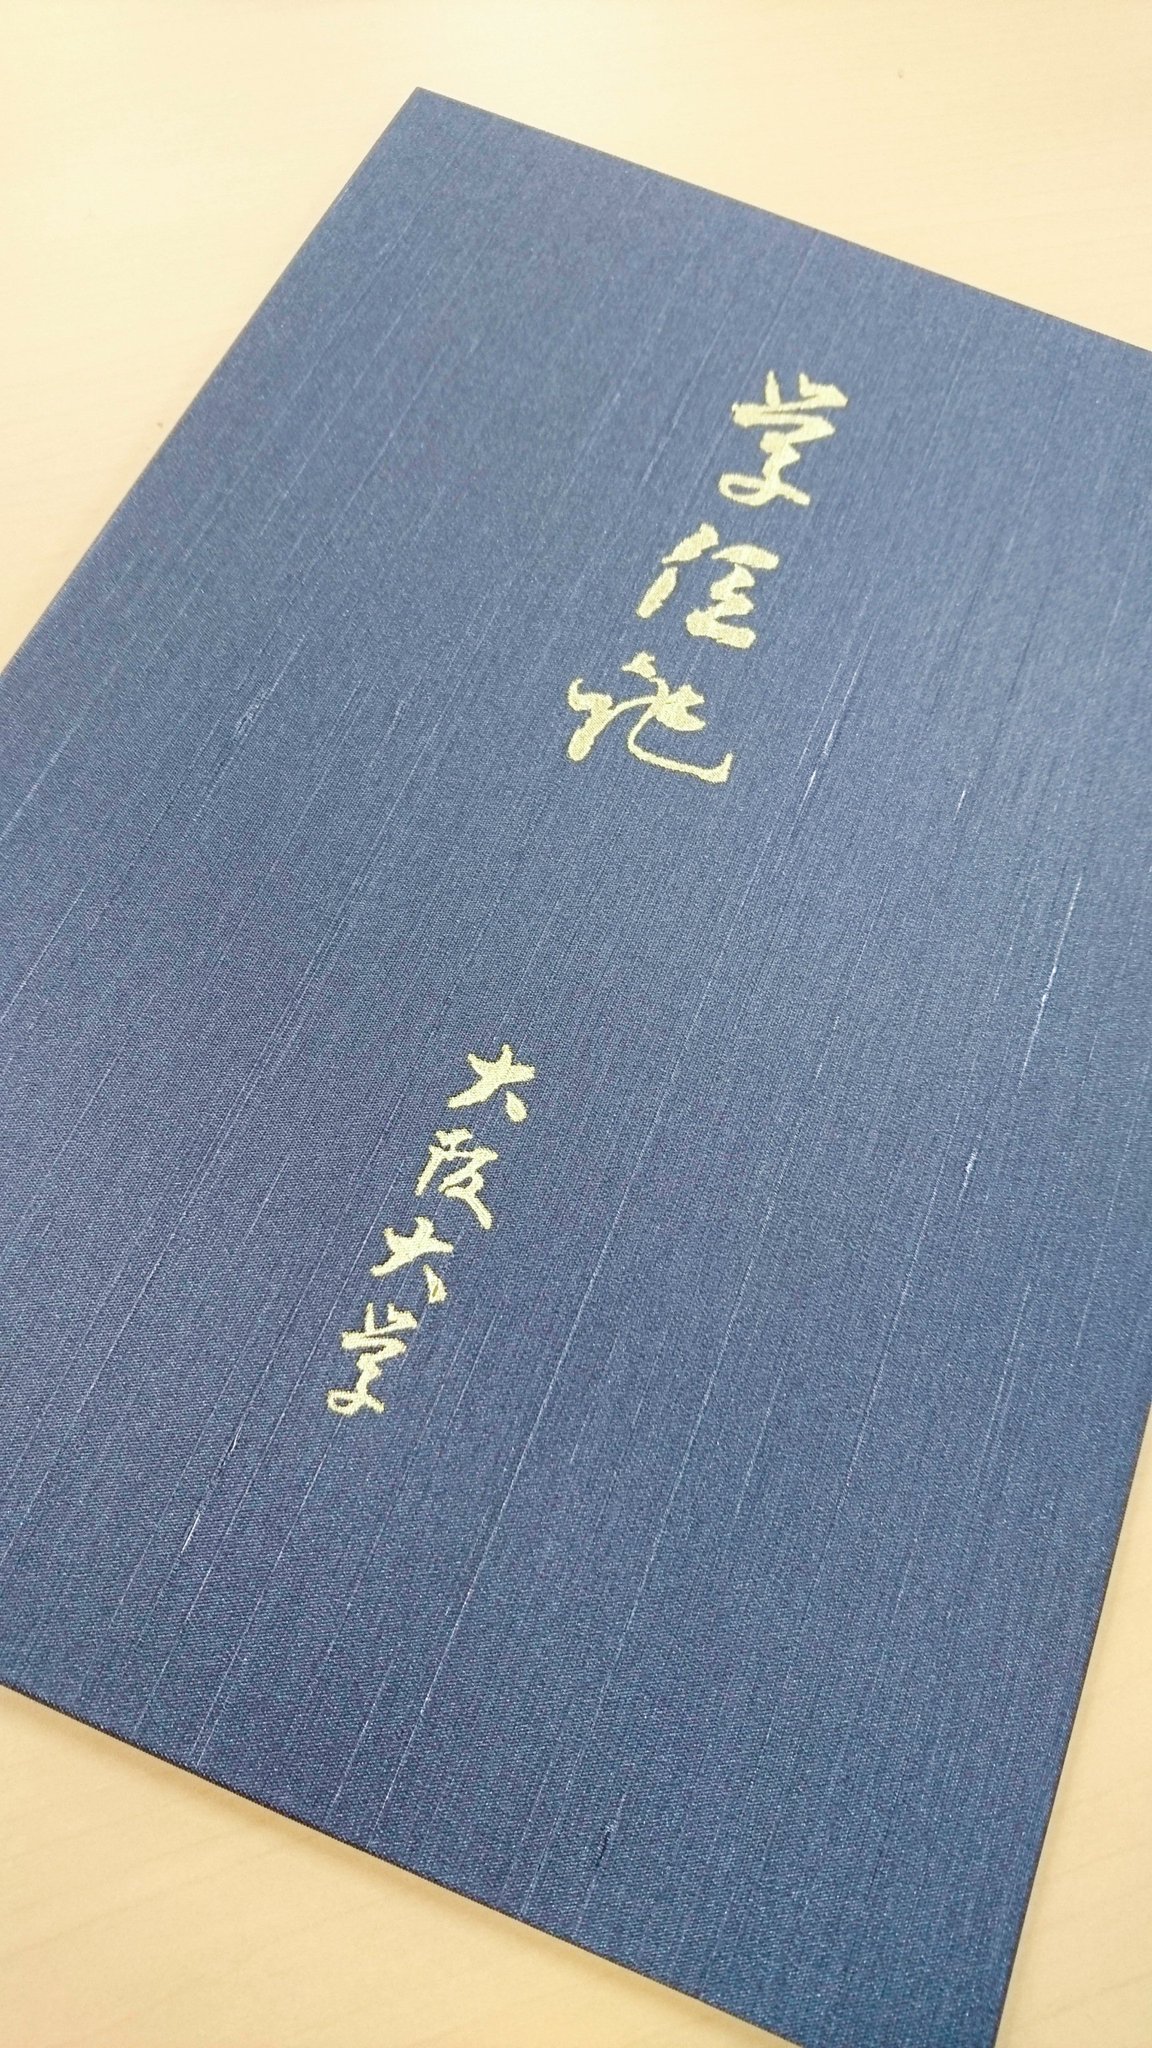 学位記
大阪大学